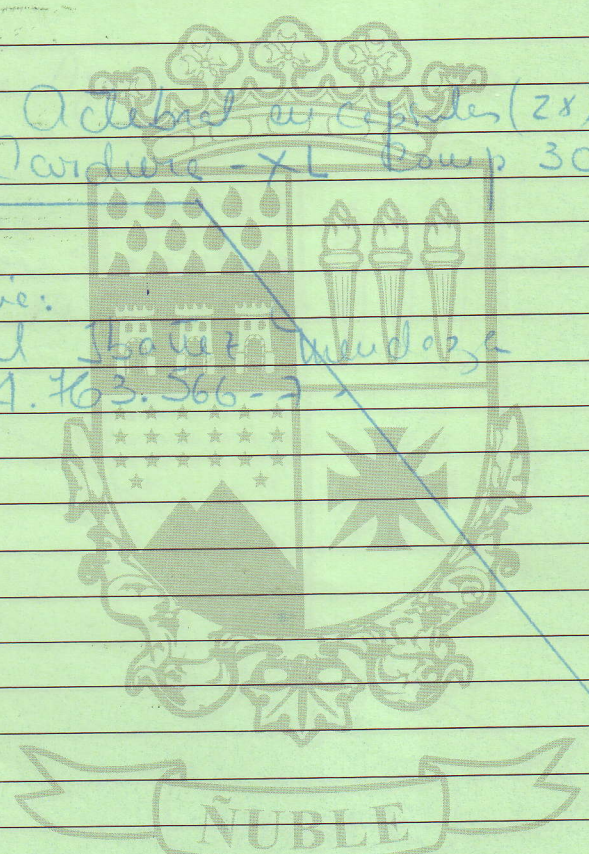 Acebrat en cipintes (2x
Cardura - XL Comp 30
ie:
l Ibañez Mendoza
.763.566-7
ÑUBLE